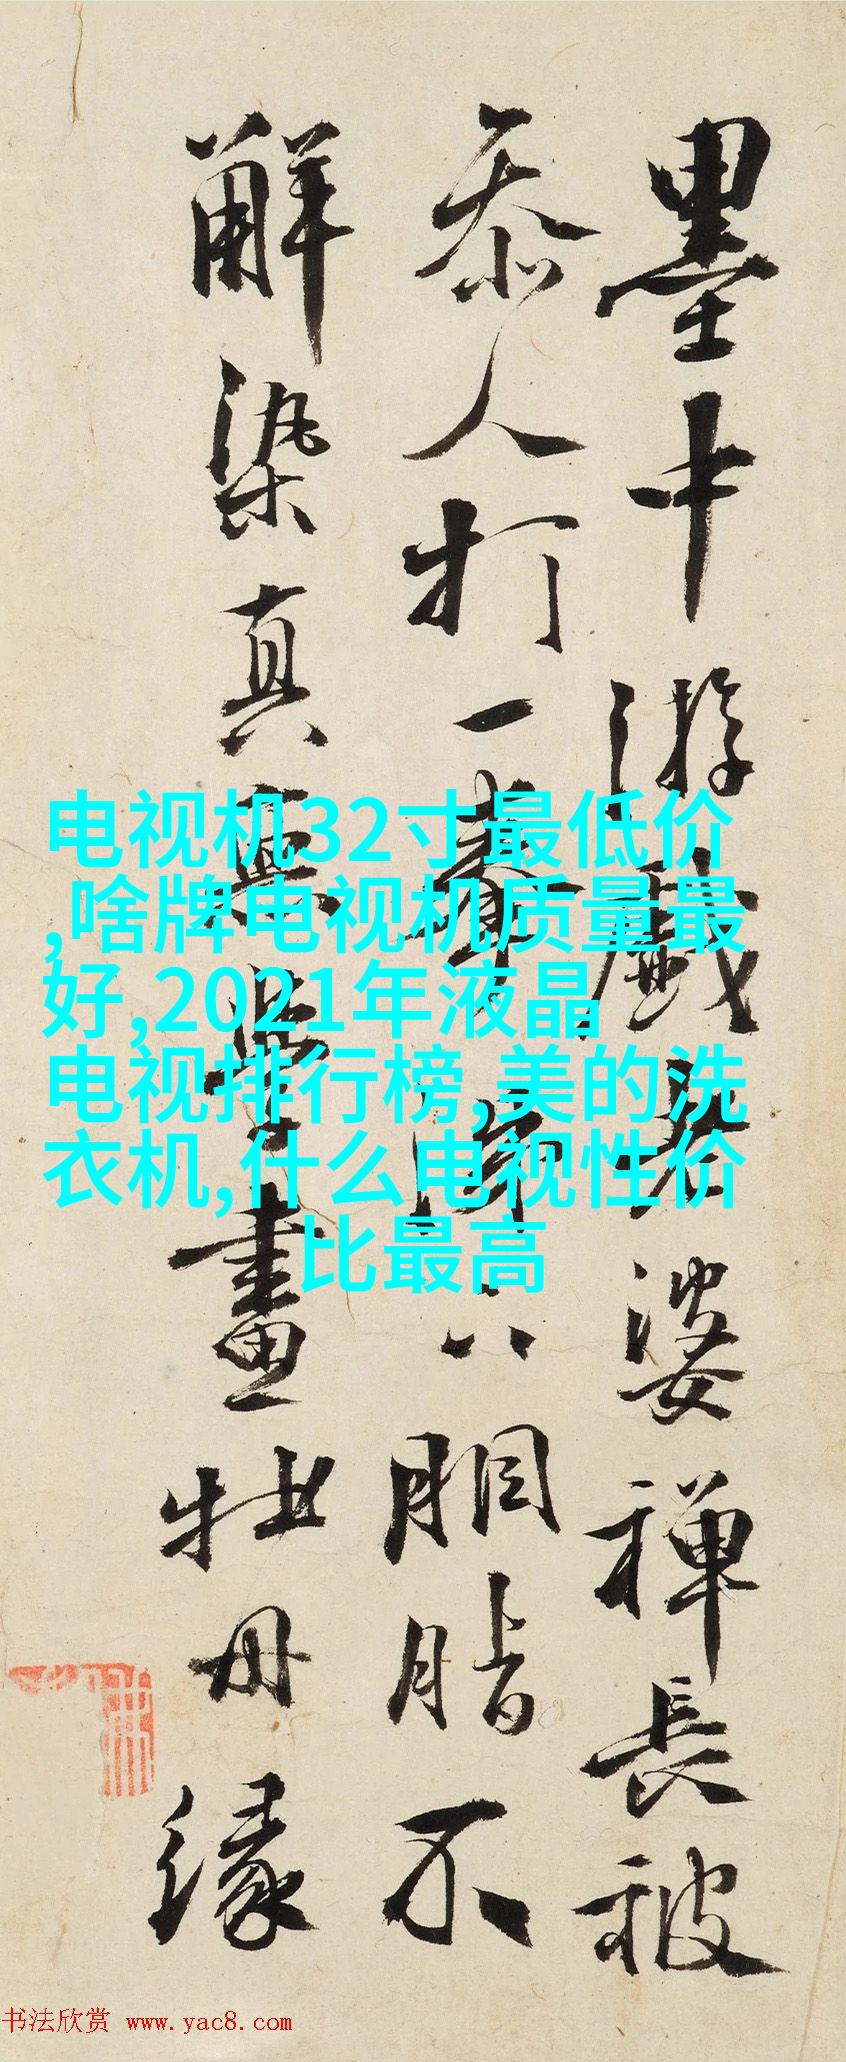 墨中游戲老婆禪長被
忝人打一拳胭脂不
解染真無學畫牡丹緣
电视机32寸最低价
,啥牌电视机质量最
好,2021年液晶
电视排行榜,美的洗
衣机,什么电视性价
比最高
书法欣赏 www.yac8.com